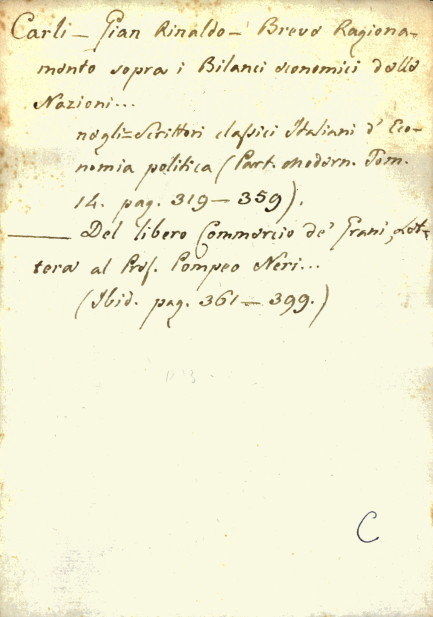 Carli – Gian Rinaldo – Breve Ragiona-
mento sopra i Bilanci economici delle
Nazioni...
negli = Scrittori classici Italiani d' Eco-
nomia politica (Part. modern. Tom.
14. pag. 319 – 359).
——— Del libero Commercio de' Grani, Let-
tera al Prof. Pompeo Neri...
(Ibid. pag. 361 – 399.)
C